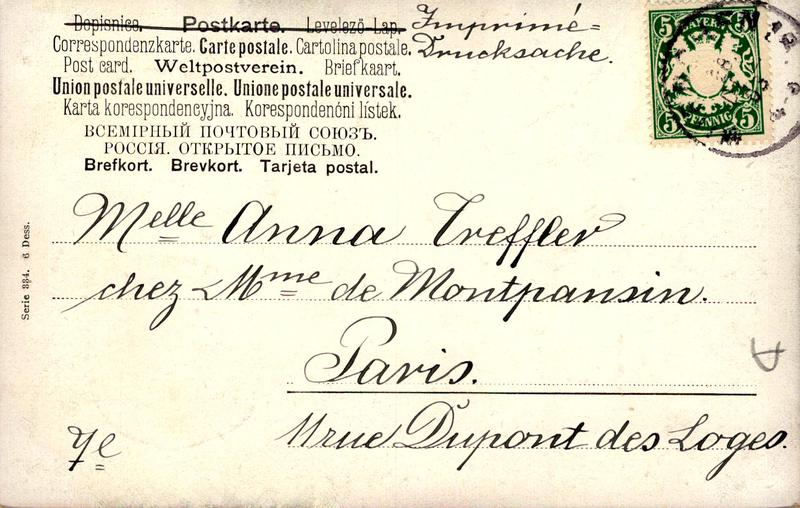 Dopisnice. Postkarte. Levelező-Lap.
Correspondenzkarte. Carte postale. Cartolina postale.
Post card. Weltpostverein. Briefkaart.
Union postale universelle. Unione postale universale.
Karta korespondencyjna. Korespondenční lístek.
ВСЕМІРНЫЙ ПОЧТОВЫЙ СОЮЗЪ.
РОССІЯ. ОТКРЫТОЕ ПИСЬМО.
Brefkort. Brevkort. Tarjeta postal.
Imprimé=
Drucksache.
5 BAYERN 5
5 PFENNIG 5
Melle Anna Treffler
chez Mme de Montpansin.
Paris.
11 rue Dupont des Loges.
7e
Serie 334. 6 Dess.